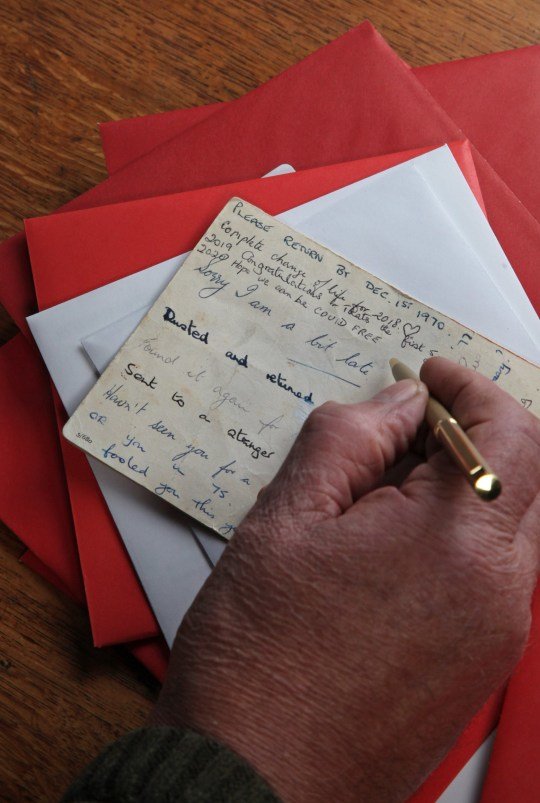 PLEASE RETURN BY DEC. 1ST 1970.
Complete change of life for 2018.
2019 Congratulations to
2020 Hope we can be COVID FREE
Sorry I am a bit late
Dusted and returned
Found it again for
Sent to a stranger
Haven't seen you for a
OR you in 75
fooled you this